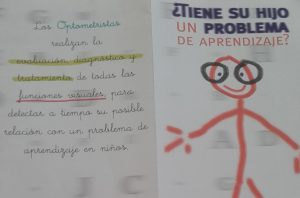 Los Optometristas
realizan la
evaluación, diagnóstico y
tratamiento de todas las
funciones visuales, para
detectar a tiempo su posible
relación con un problema de
aprendizaje en niños.
¿TIENE SU HIJO
UN PROBLEMA
DE APRENDIZAJE?